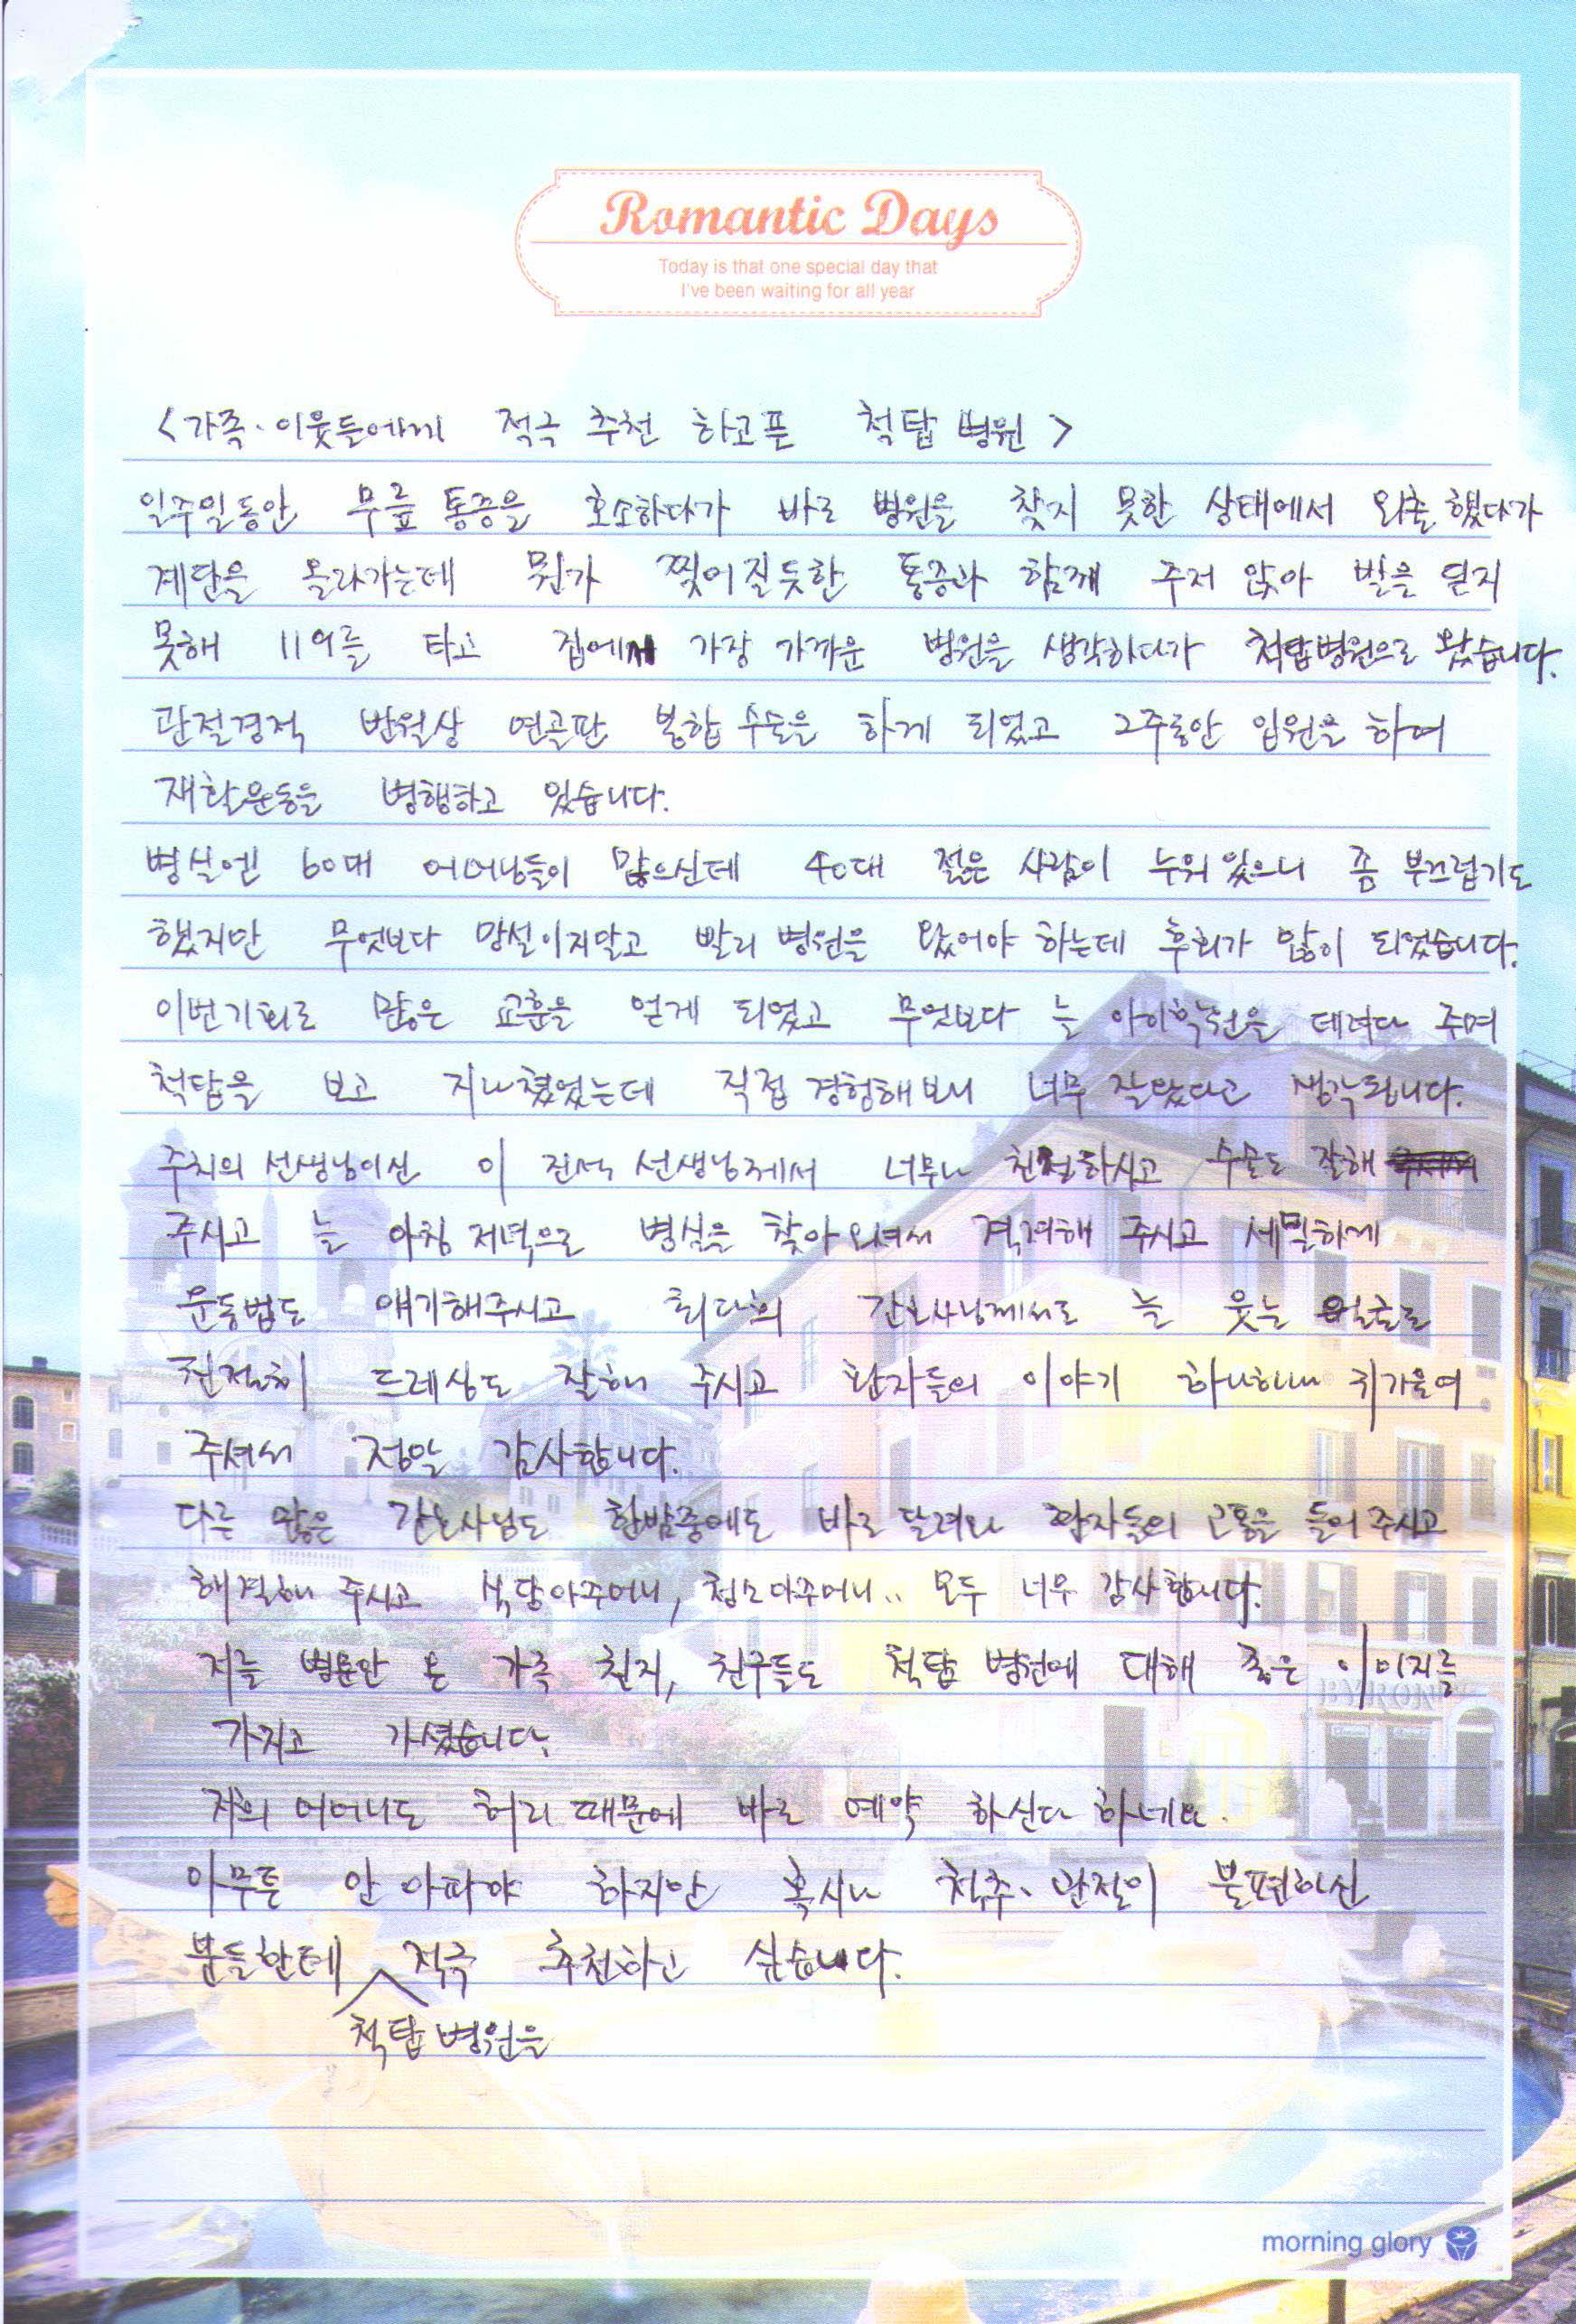 Romantic Days
Today is that one special day that
I've been waiting for all year
<가족·이웃들에게 적극 추천 하고픈 척탑 병원>
일주일동안 무릎 통증을 호소하다가 바로 병원을 찾지 못한 상태에서 외출했다가
계단을 올라가는데 뭔가 찢어질듯한 통증과 함께 주저 앉아 발을 딛지
못해 119를 타고 집에서 가장 가까운 병원을 생각하다가 척탑병원으로 왔습니다.
관절경적 반월상 연골판 봉합 수술을 하게 되었고 2주동안 입원을 하여
재활운동을 병행하고 있습니다.
병실엔 60대 어머님들이 많으신데 40대 젊은 사람이 누워 있으니 좀 부끄럽기도
했지만 무엇보다 망설이지말고 빨리 병원을 왔어야 하는데 후회가 많이 되었습니다.
이번기회로 많은 교훈을 얻게 되었고 무엇보다 늘 아이학원을 데려다 주며
척탑을 보고 지나쳤었는데 직접 경험해보니 너무 잘왔다고 생각됩니다.
주치의 선생님이신 이 진석 선생님께서 너무나 친절하시고 수술도 잘해
주시고 늘 아침 저녁으로 병실을 찾아 오셔서 격려해 주시고 세밀하게
운동법도 얘기해주시고 최다희 간호사님께서도 늘 웃는 얼굴로
친절히 드레싱도 잘해 주시고 환자들의 이야기 하나하나 귀기울여
주셔서 정말 감사합니다.
다른 많은 간호사님도 한밤중에도 바로 달려와 환자들의 고통을 들어 주시고
해결해 주시고 식당아주머니, 청소아주머니.. 모두 너무 감사합니다.
저를 병문안 온 가족 친지, 친구들도 척탑 병원에 대해 좋은 이미지를
가지고 가셨습니다.
저희 어머니도 허리 때문에 바로 예약 하신다 하네요.
아무튼 안 아파야 하지만 혹시나 척추·관절이 불편하신
분들한테 적극 추천하고 싶습니다.
척탑 병원을
BYRON
morning glory